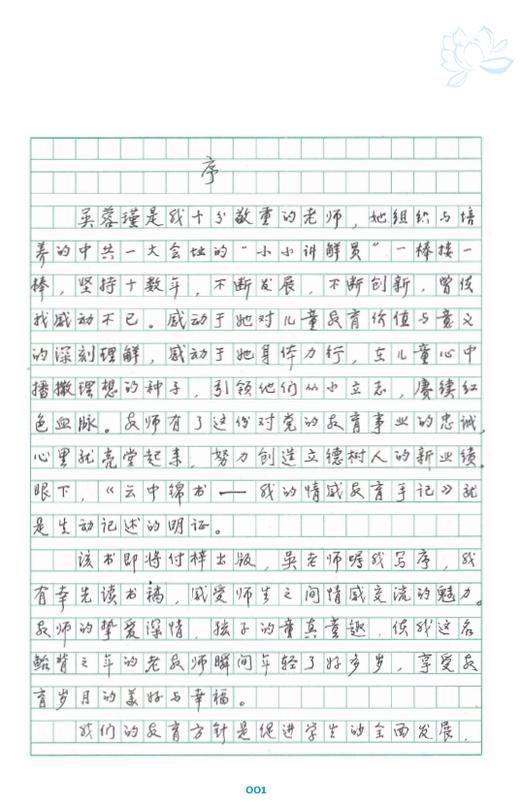 序
吴蓉瑾是我十分敬重的老师，她组织与培
养的中共一大会址的“小小讲解员”一棒接一
棒，坚持十数年，不断发展，不断创新，曾使
我感动不已。感动于她对儿童教育价值与意义
的深刻理解，感动于她身体力行，在儿童心中
播撒理想的种子，引领他们从小立志，赓续红
色血脉。教师有了这份对党的教育事业的忠诚，
心里就亮堂起来，努力创造立德树人的新业绩。
眼下，《云中锦书——我的情感教育手记》就
是生动记述的明证。
该书即将付梓出版，吴老师嘱我写序，我
有幸先读书稿，感受师生之间情感交流的魅力。
教师的挚爱深情，孩子的童真童趣，使我这名
鲐背之年的老教师瞬间年轻了好多岁，享受教
育岁月的美好与幸福。
我们的教育方针是促进学生的全面发展，
001